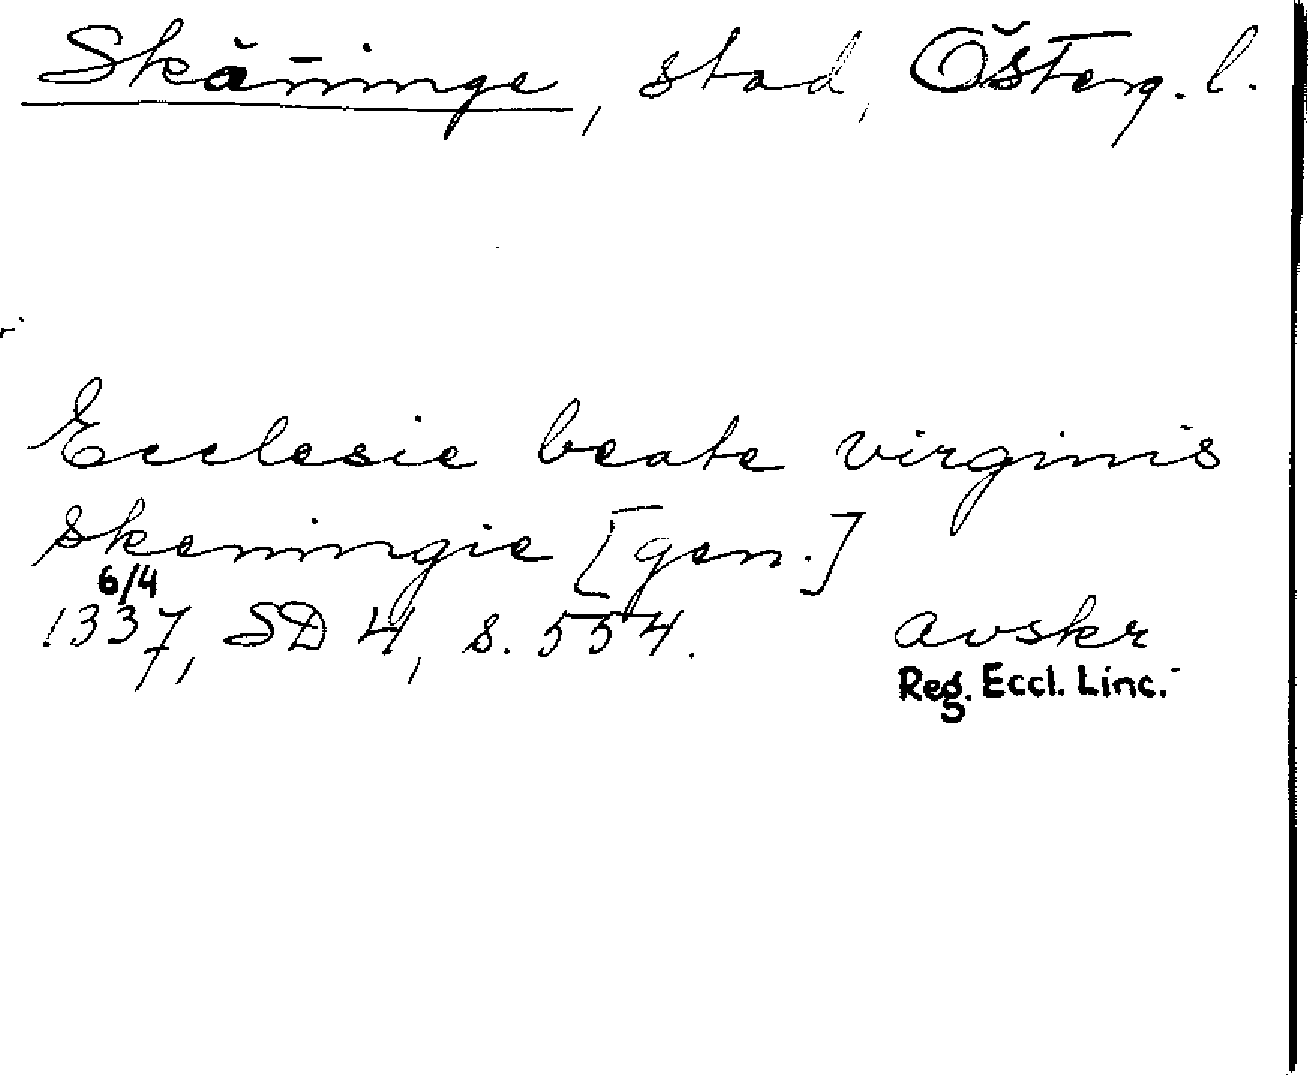 Skänninge, stad, Österg. l.
Ecclesie beate virginis
skeningie [gen.]
6/4
1337, SD 4, s. 554. avskr
Reg. Eccl. Linc.